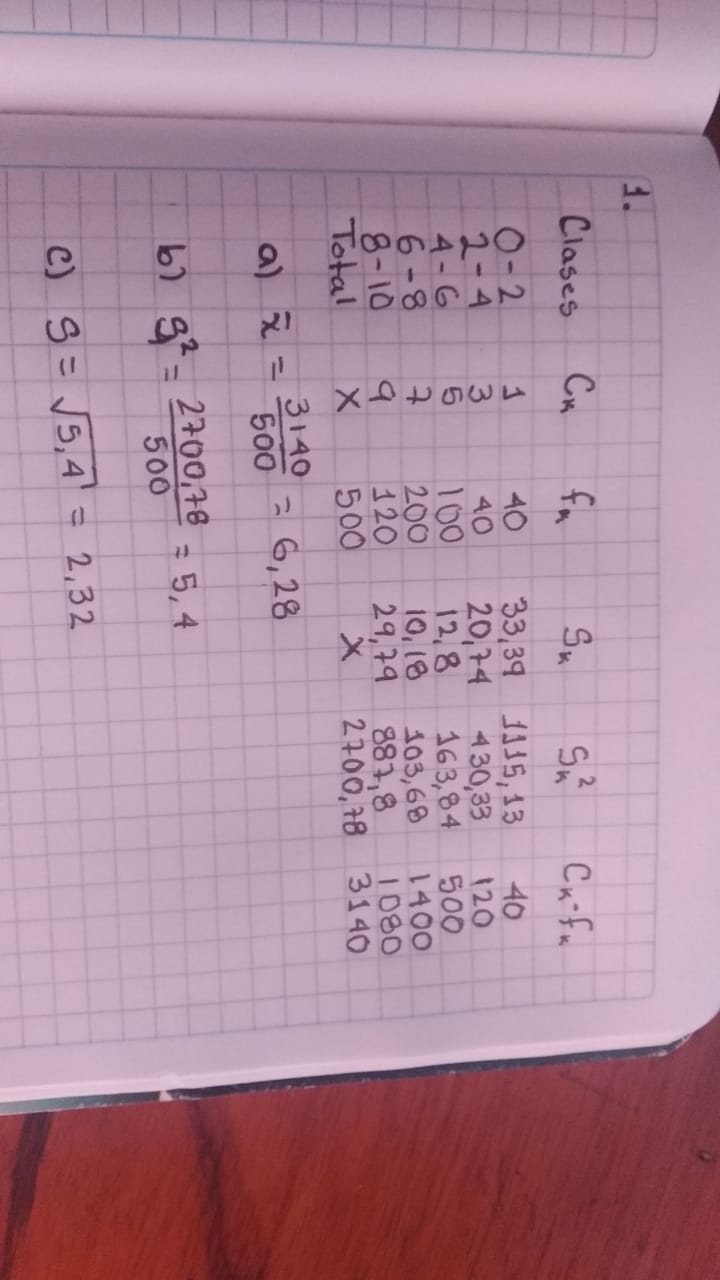 1.
Clases Cₖ fₖ Sₖ Sₖ² Cₖ·fₖ
0-2 1 40 33,39 1115,13 40
2-4 3 40 20,74 430,33 120
4-6 5 100 12,8 163,84 500
6-8 7 200 10,18 103,68 1400
8-10 9 120 29,79 887,8 1080
Total X 500 X 2700,78 3140
a) x̄ = 3140/500 = 6,28
b) S² = 2700,78/500 = 5,4
c) S = √5,4 = 2,32